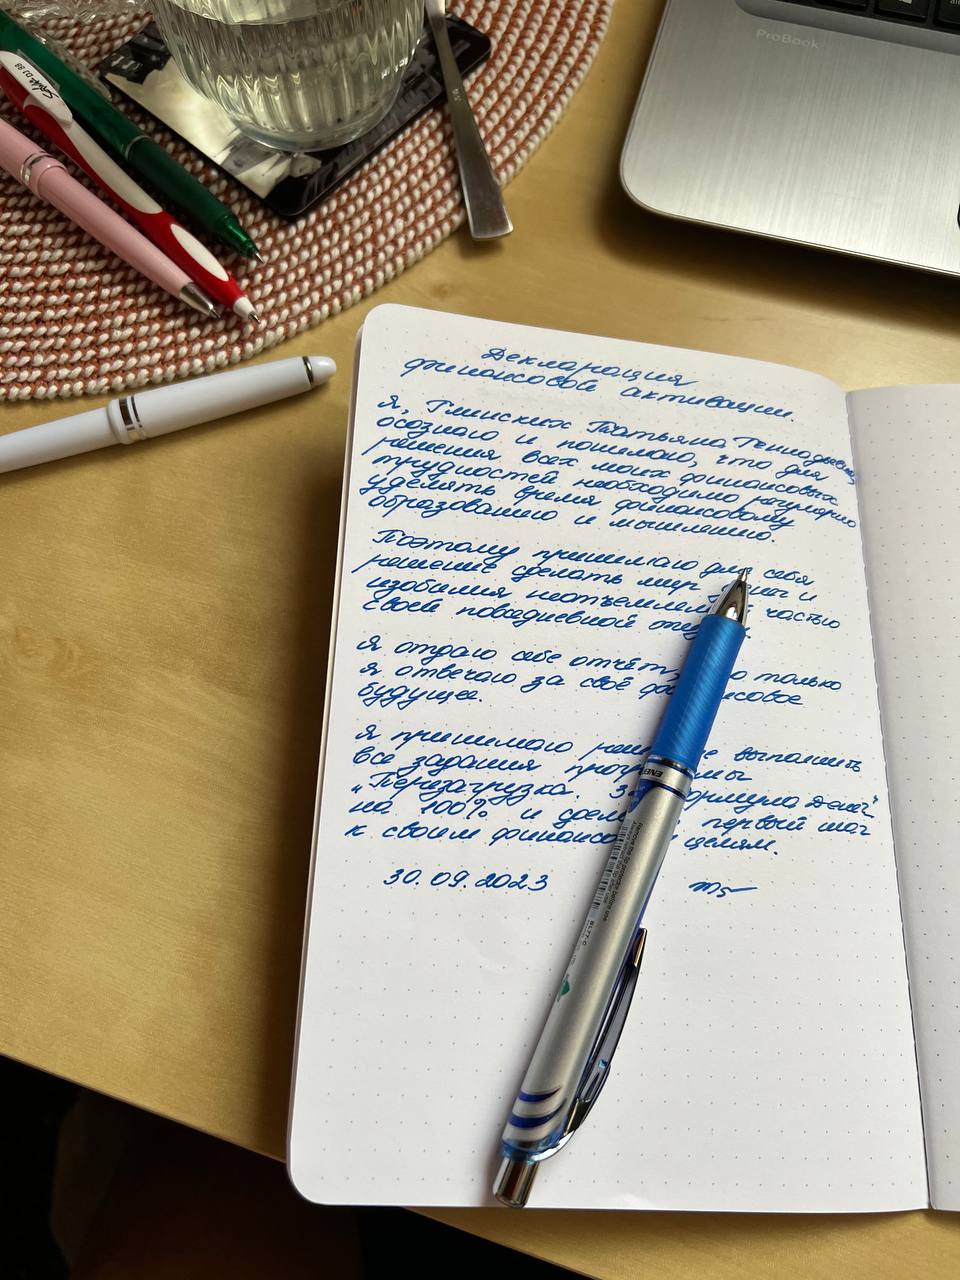 ProBook
Декларация
финансовой активации.
Я, Татьяна Геннадьевна
осознаю и понимаю, что для
решения всех моих финансовых
трудностей необходимо регулярно
уделять время финансовому
образованию и мышлению.
Поэтому принимаю для себя
решение сделать мир и
изобилия частью
своей повседневной
Я отдаю себе отчёт, только
я отвечаю за своё
будущее.
Я принимаю выполнить
все задания
„Перезагрузка. Денег“
на 100% и первый шаг
к своим целям.
30.09.2023
ENER
BL77-C